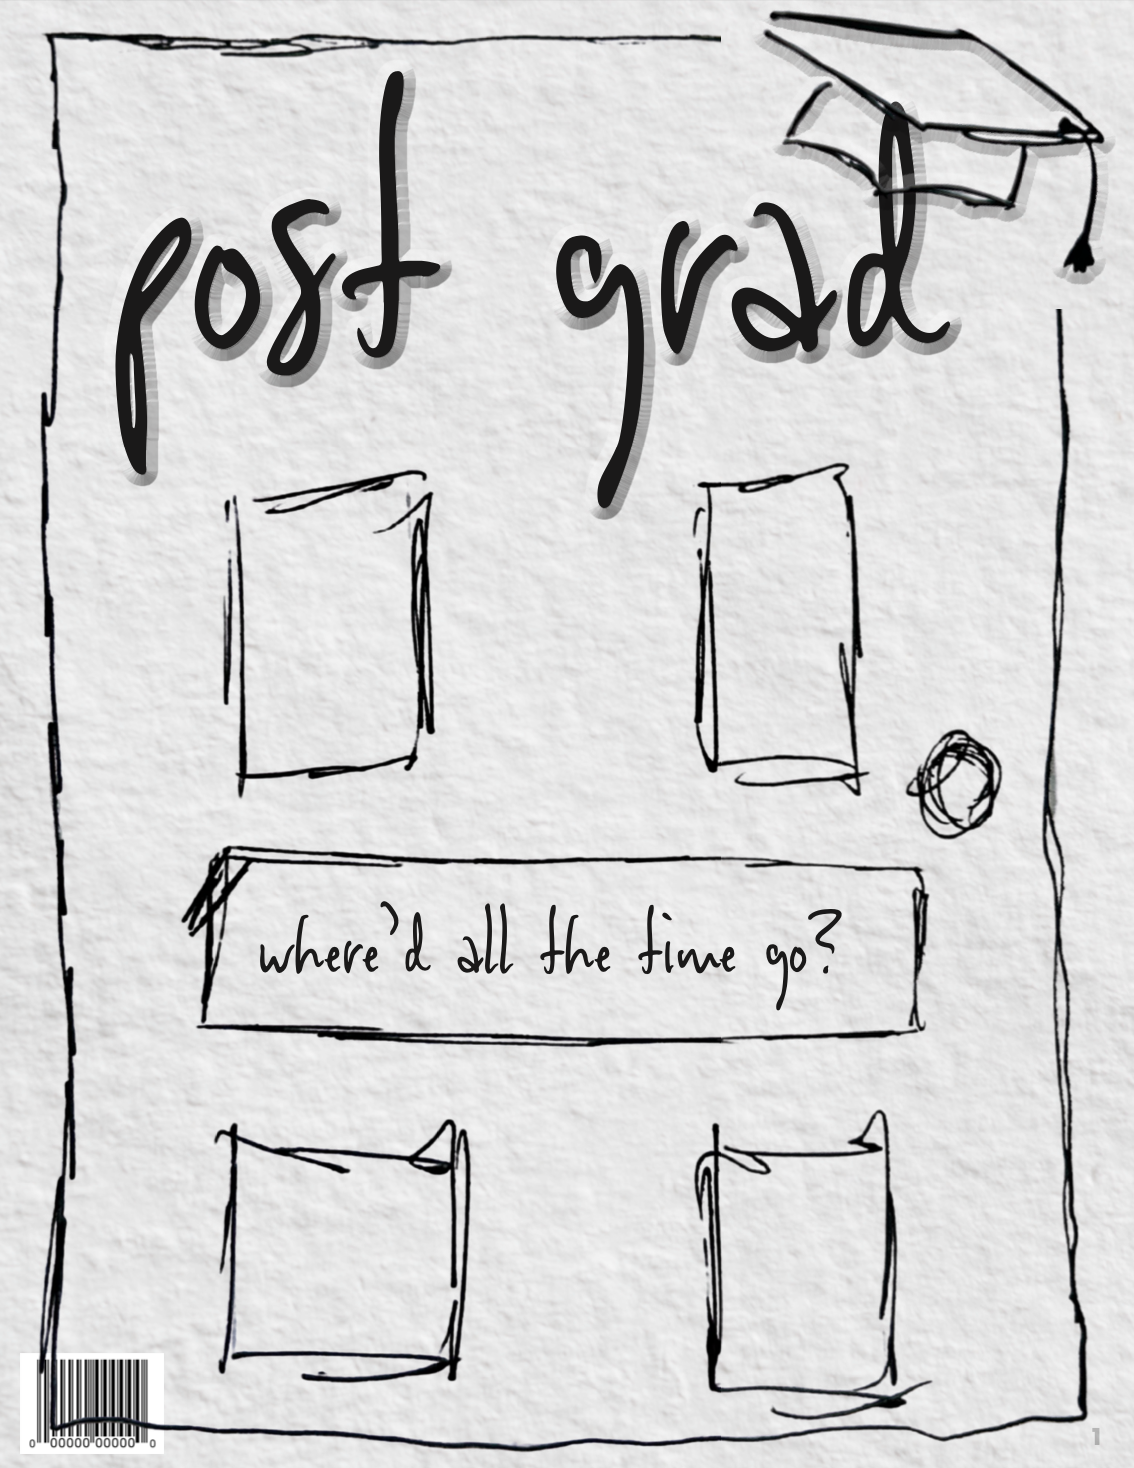 post grad
where'd all the time go?
0 00000 00000 0
1